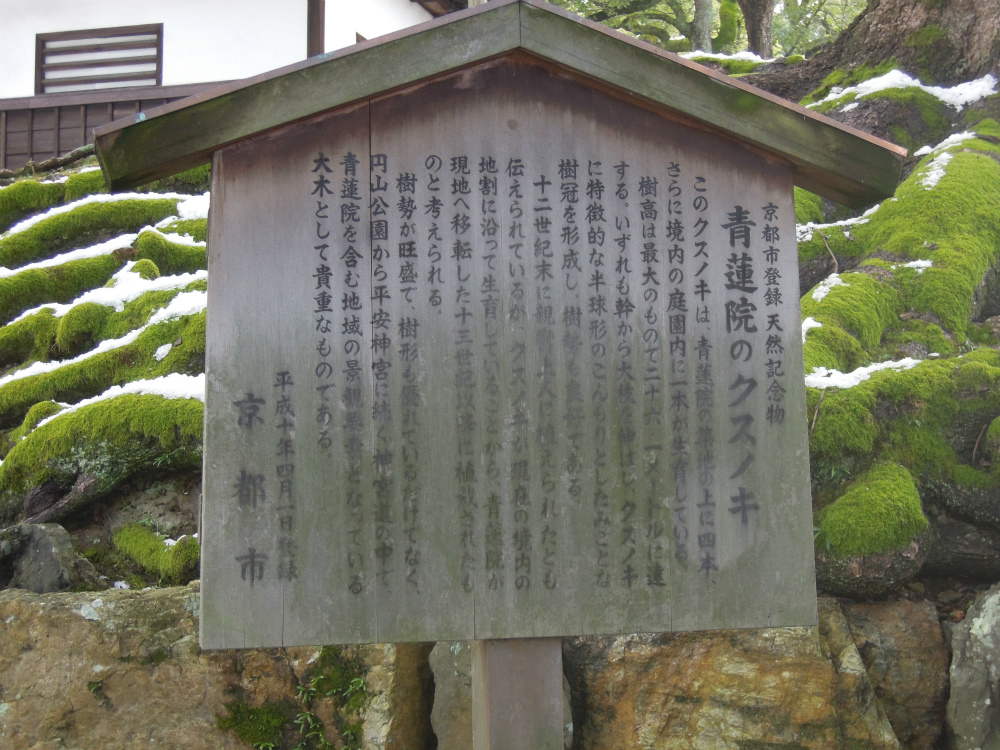 京都市登録 天然記念物
青蓮院のクスノキ
このクスノキは、青蓮院の築地の上に四本、
さらに境内の庭園内に一本が生育している。
樹高は最大のもので二十六・一メートルに達
する。いずれも幹から大枝を伸ばし、クスノキ
に特徴的な半球形のこんもりとしたみごとな
樹冠を形成し、樹勢も である。
十二世紀末に親鸞 人に植えられたとも
伝えられているが、クスノキが現在の境内の
地割に沿って生育していることから、青蓮院が
現地へ移転した十三世紀以降に植栽されたも
のと考えられる。
樹勢が旺盛で、樹形も優れているだけでなく、
円山公園から平安神宮に続く神宮道の中で、
青蓮院を含む地域の景観要素となっている
大木として貴重なものである。
平成十年四月一日登録
京都市